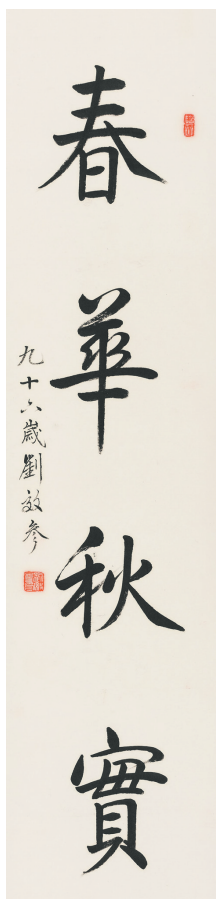 春華秋實
九十六歲劉效參